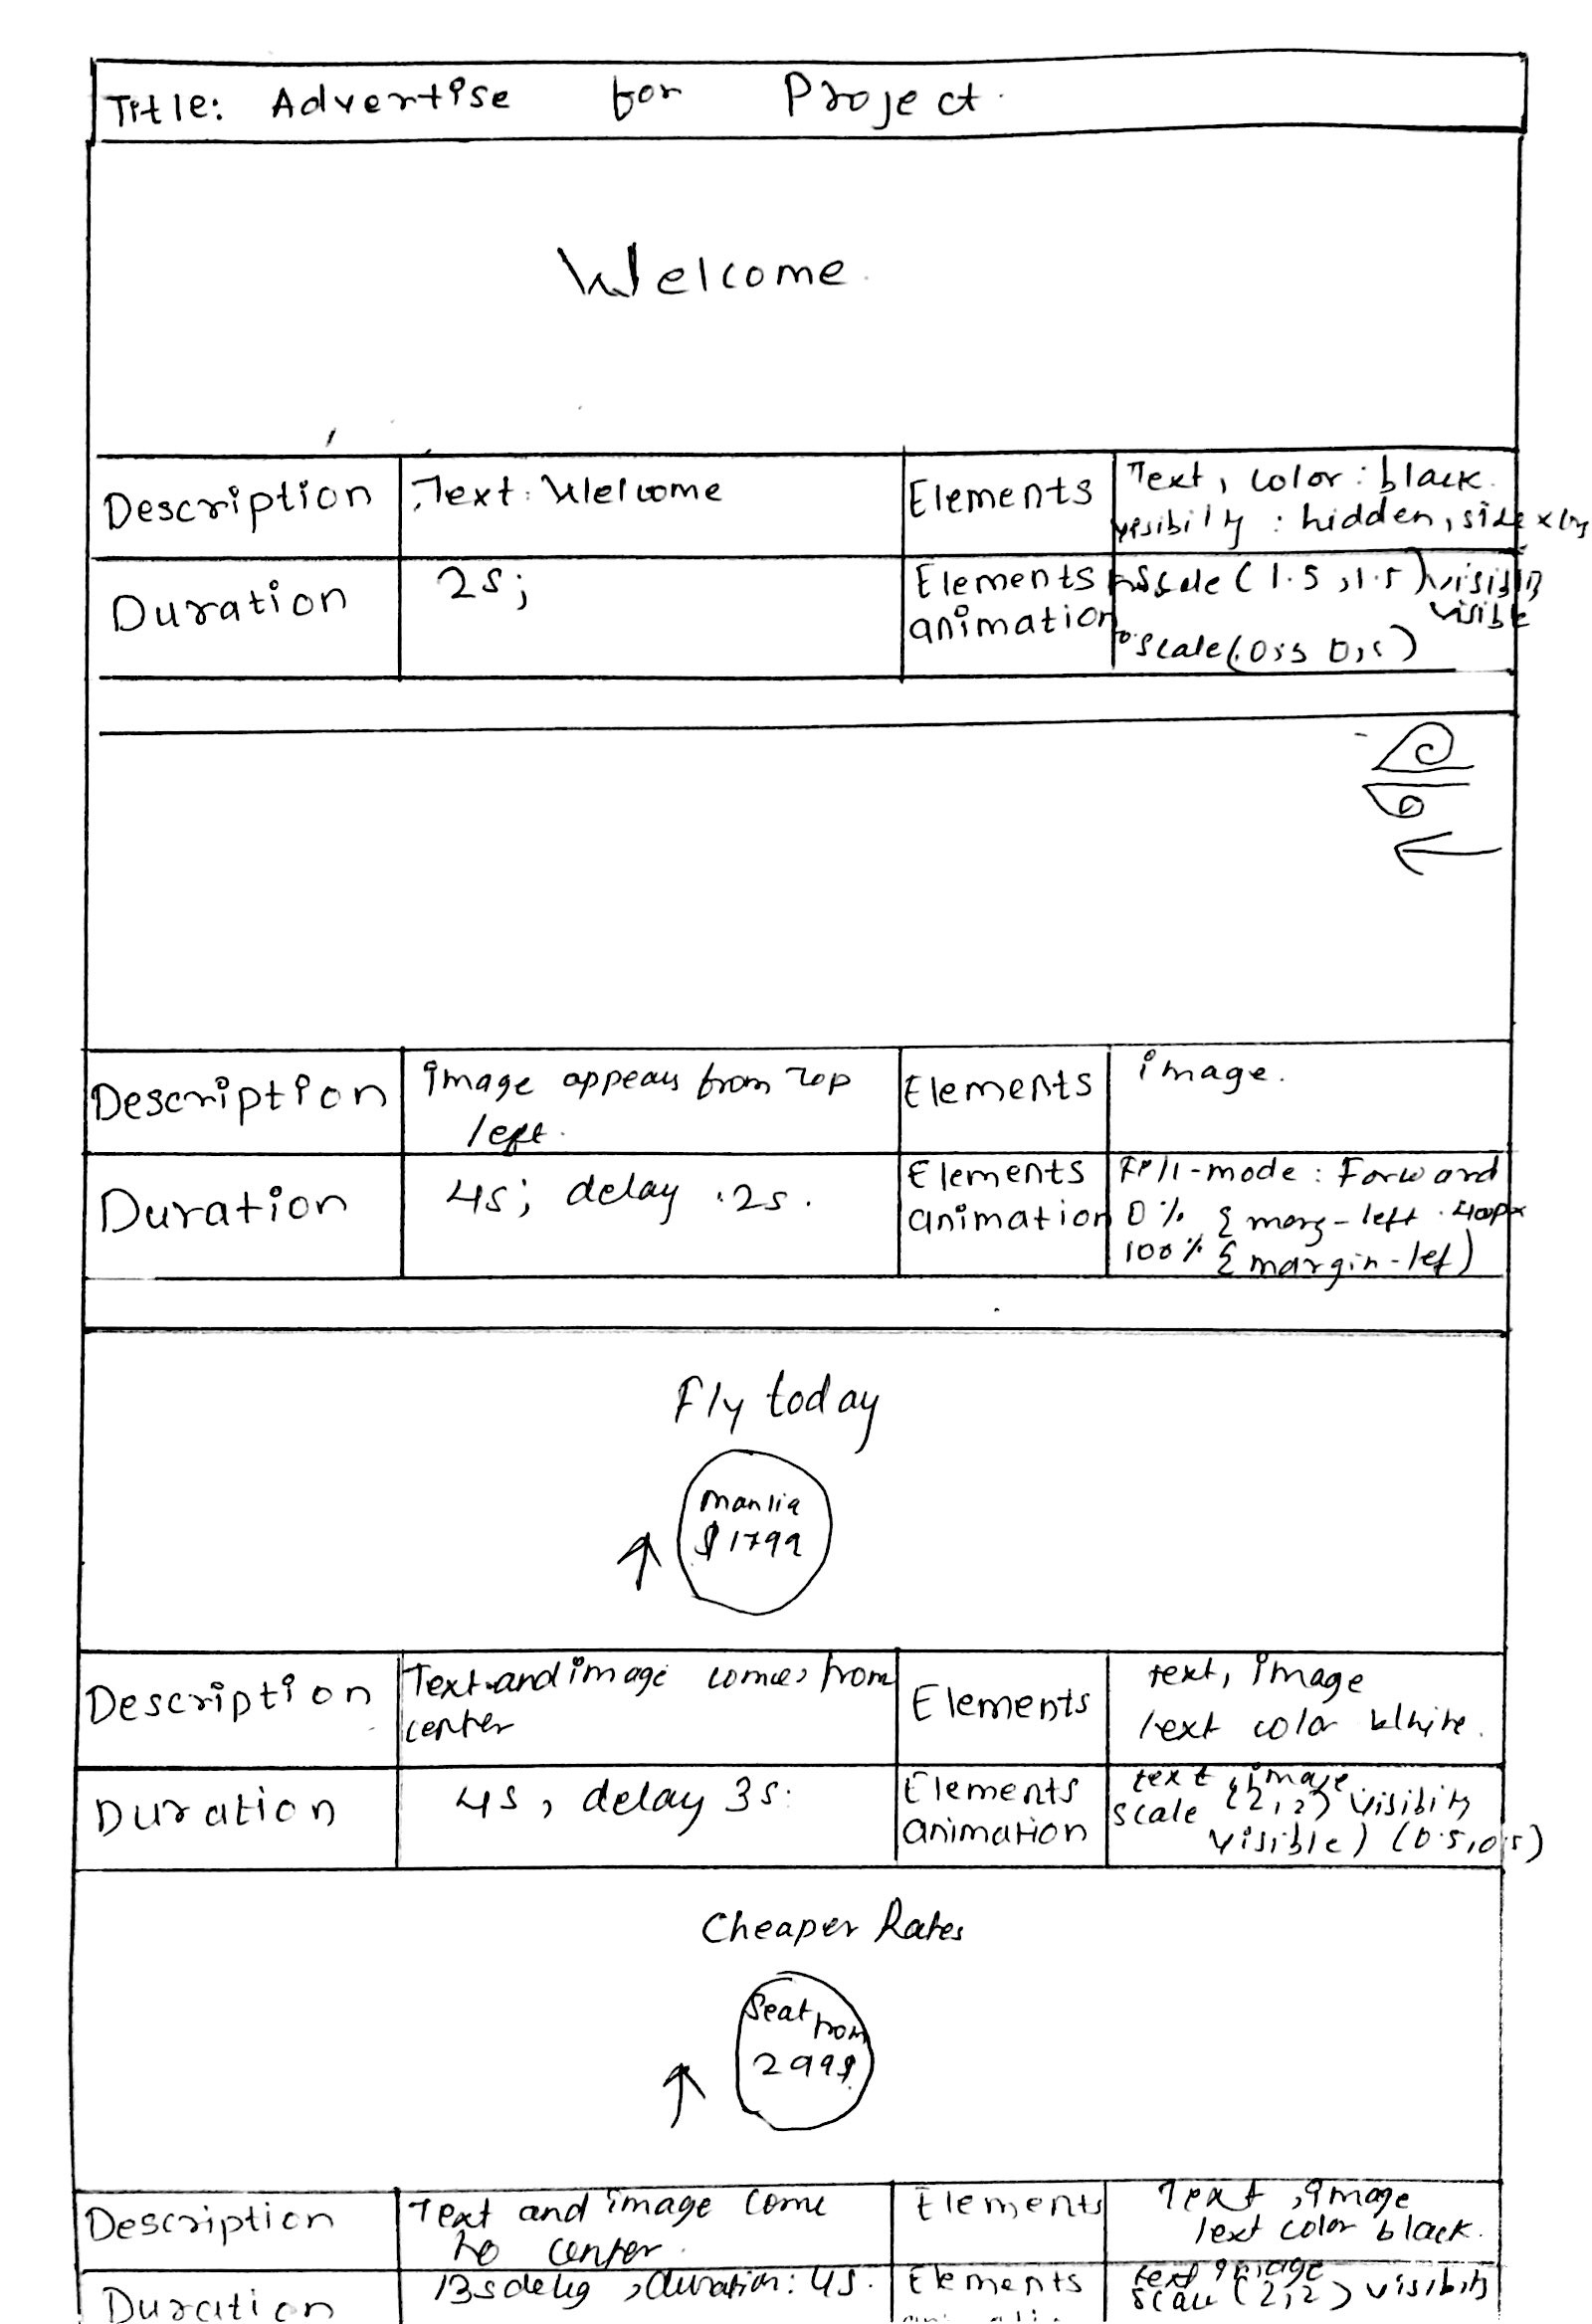 Title: Advertise for Project.
Welcome.
Description
Text: Welcome
Elements
Text, color: black.
visibily : hidden, side
Duration
2s;
Elements animation
scale (1.5, 1.5)
visible
to scale(
Description
image appears from top
left.
Elements
image.
Duration
4s; delay .2s.
Elements
animation
Fill-mode: Forward
0% { marg-left . 400px
100% { margin-lef)
Fly today
manlia
$1799
Description
Text and image comes from
center
Elements
text, image
text color white.
Duration
4s, delay 3s.
Elements
animation
text, image
scale (2,2) visibity
visible) (0.5, 0.5)
Cheaper Rates
Seat from
299$
Description
Text and image come
to center.
Elements
Text, image
text color black.
Duration
13s delay, duration: 4s.
Elements
text image
scale (2,2) visibity